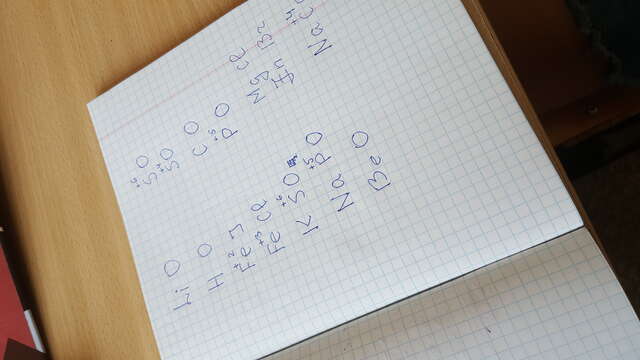 Li O
H O
+2
Fe J
+3
Fe Cl
+6
K SO
+5
Na P O
Be O
+6
S O
+4
S O
C O
+5
P O
Mg Cl
Zn Br
+4
Na C